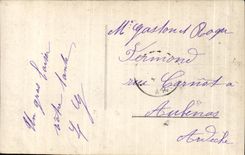 Un gros baiser
votre tante
Mrs Gaston et Roger
Fermond
rue Carnot
Aubenas
Ardèche